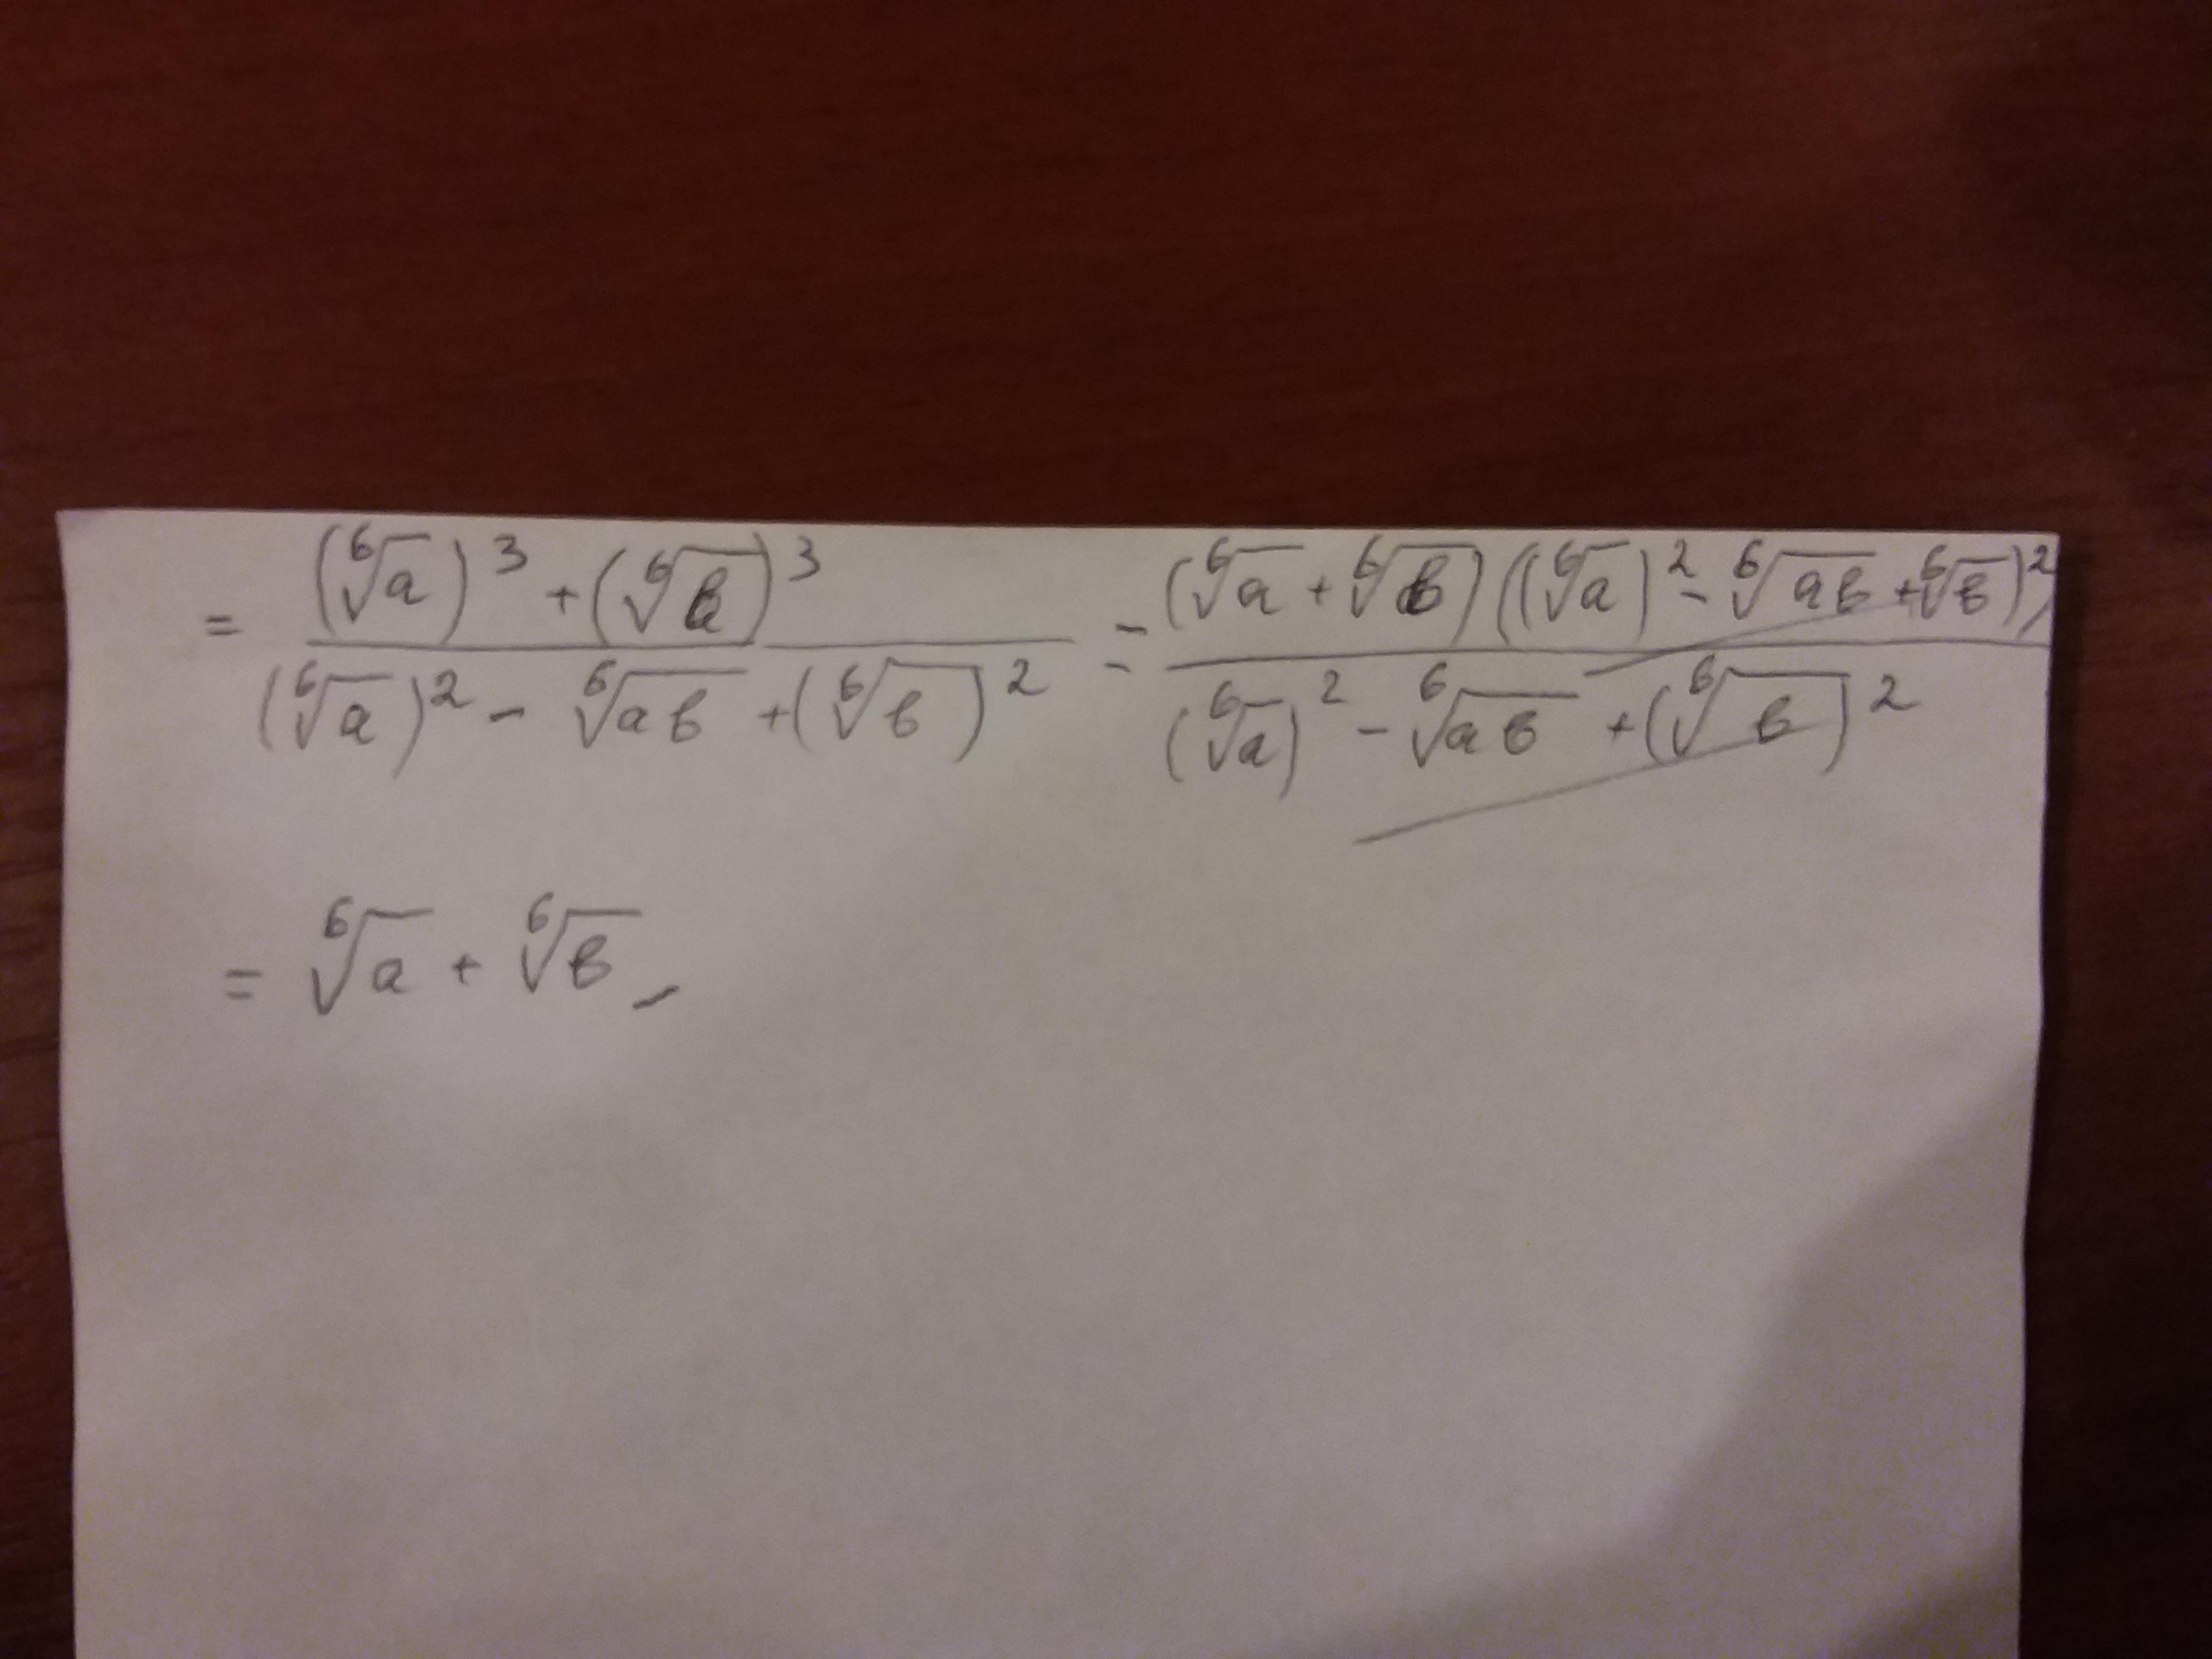 = \frac{(\sqrt[6]{a})^3 + (\sqrt[6]{b})^3}{(\sqrt[6]{a})^2 - \sqrt[6]{ab} + (\sqrt[6]{b})^2} = \frac{(\sqrt[6]{a} + \sqrt[6]{b})((\sqrt[6]{a})^2 - \sqrt[6]{ab} + \sqrt[6]{b})^2)}{(\sqrt[6]{a})^2 - \sqrt[6]{ab} + (\sqrt[6]{b})^2}
= \sqrt[6]{a} + \sqrt[6]{b}